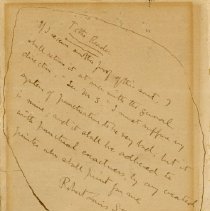 To the Reader
If I receive another proof of this sort, I
shall return it at once with the general
direction - See MS. I must suffer my
system of punctuation to be very bad; but it
is mine; and it shall be adhered to
with punctual exactness by any created
printer who shall print for me.
Robert Louis